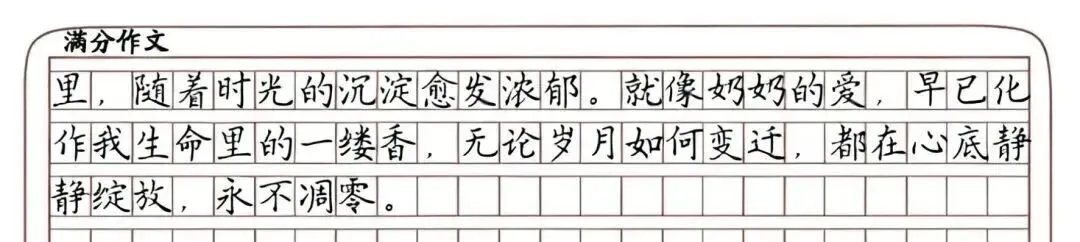 满分作文
里，随着时光的沉淀愈发浓郁。就像奶奶的爱，早已化
作我生命里的一缕香，无论岁月如何变迁，都在心底静
静绽放，永不凋零。